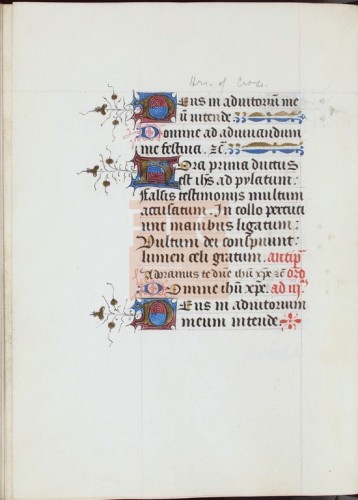 Hrs. of Cross.
Deus in adiutoriu me
u intende
Domine ad adiuuandum
me festina. zc.
Hora prima ductus
est ihs ad pylatum:
Falsis testimonijs multum
accusatum. In collo percuci
unt manibus ligatum:
Vultum dei conspuunt:
lumen celi gratum. antip
Adoramus te dne ihu xpe zc oro
Domine ihu xpe. ad iij
Deus in adiutorium
meum intende